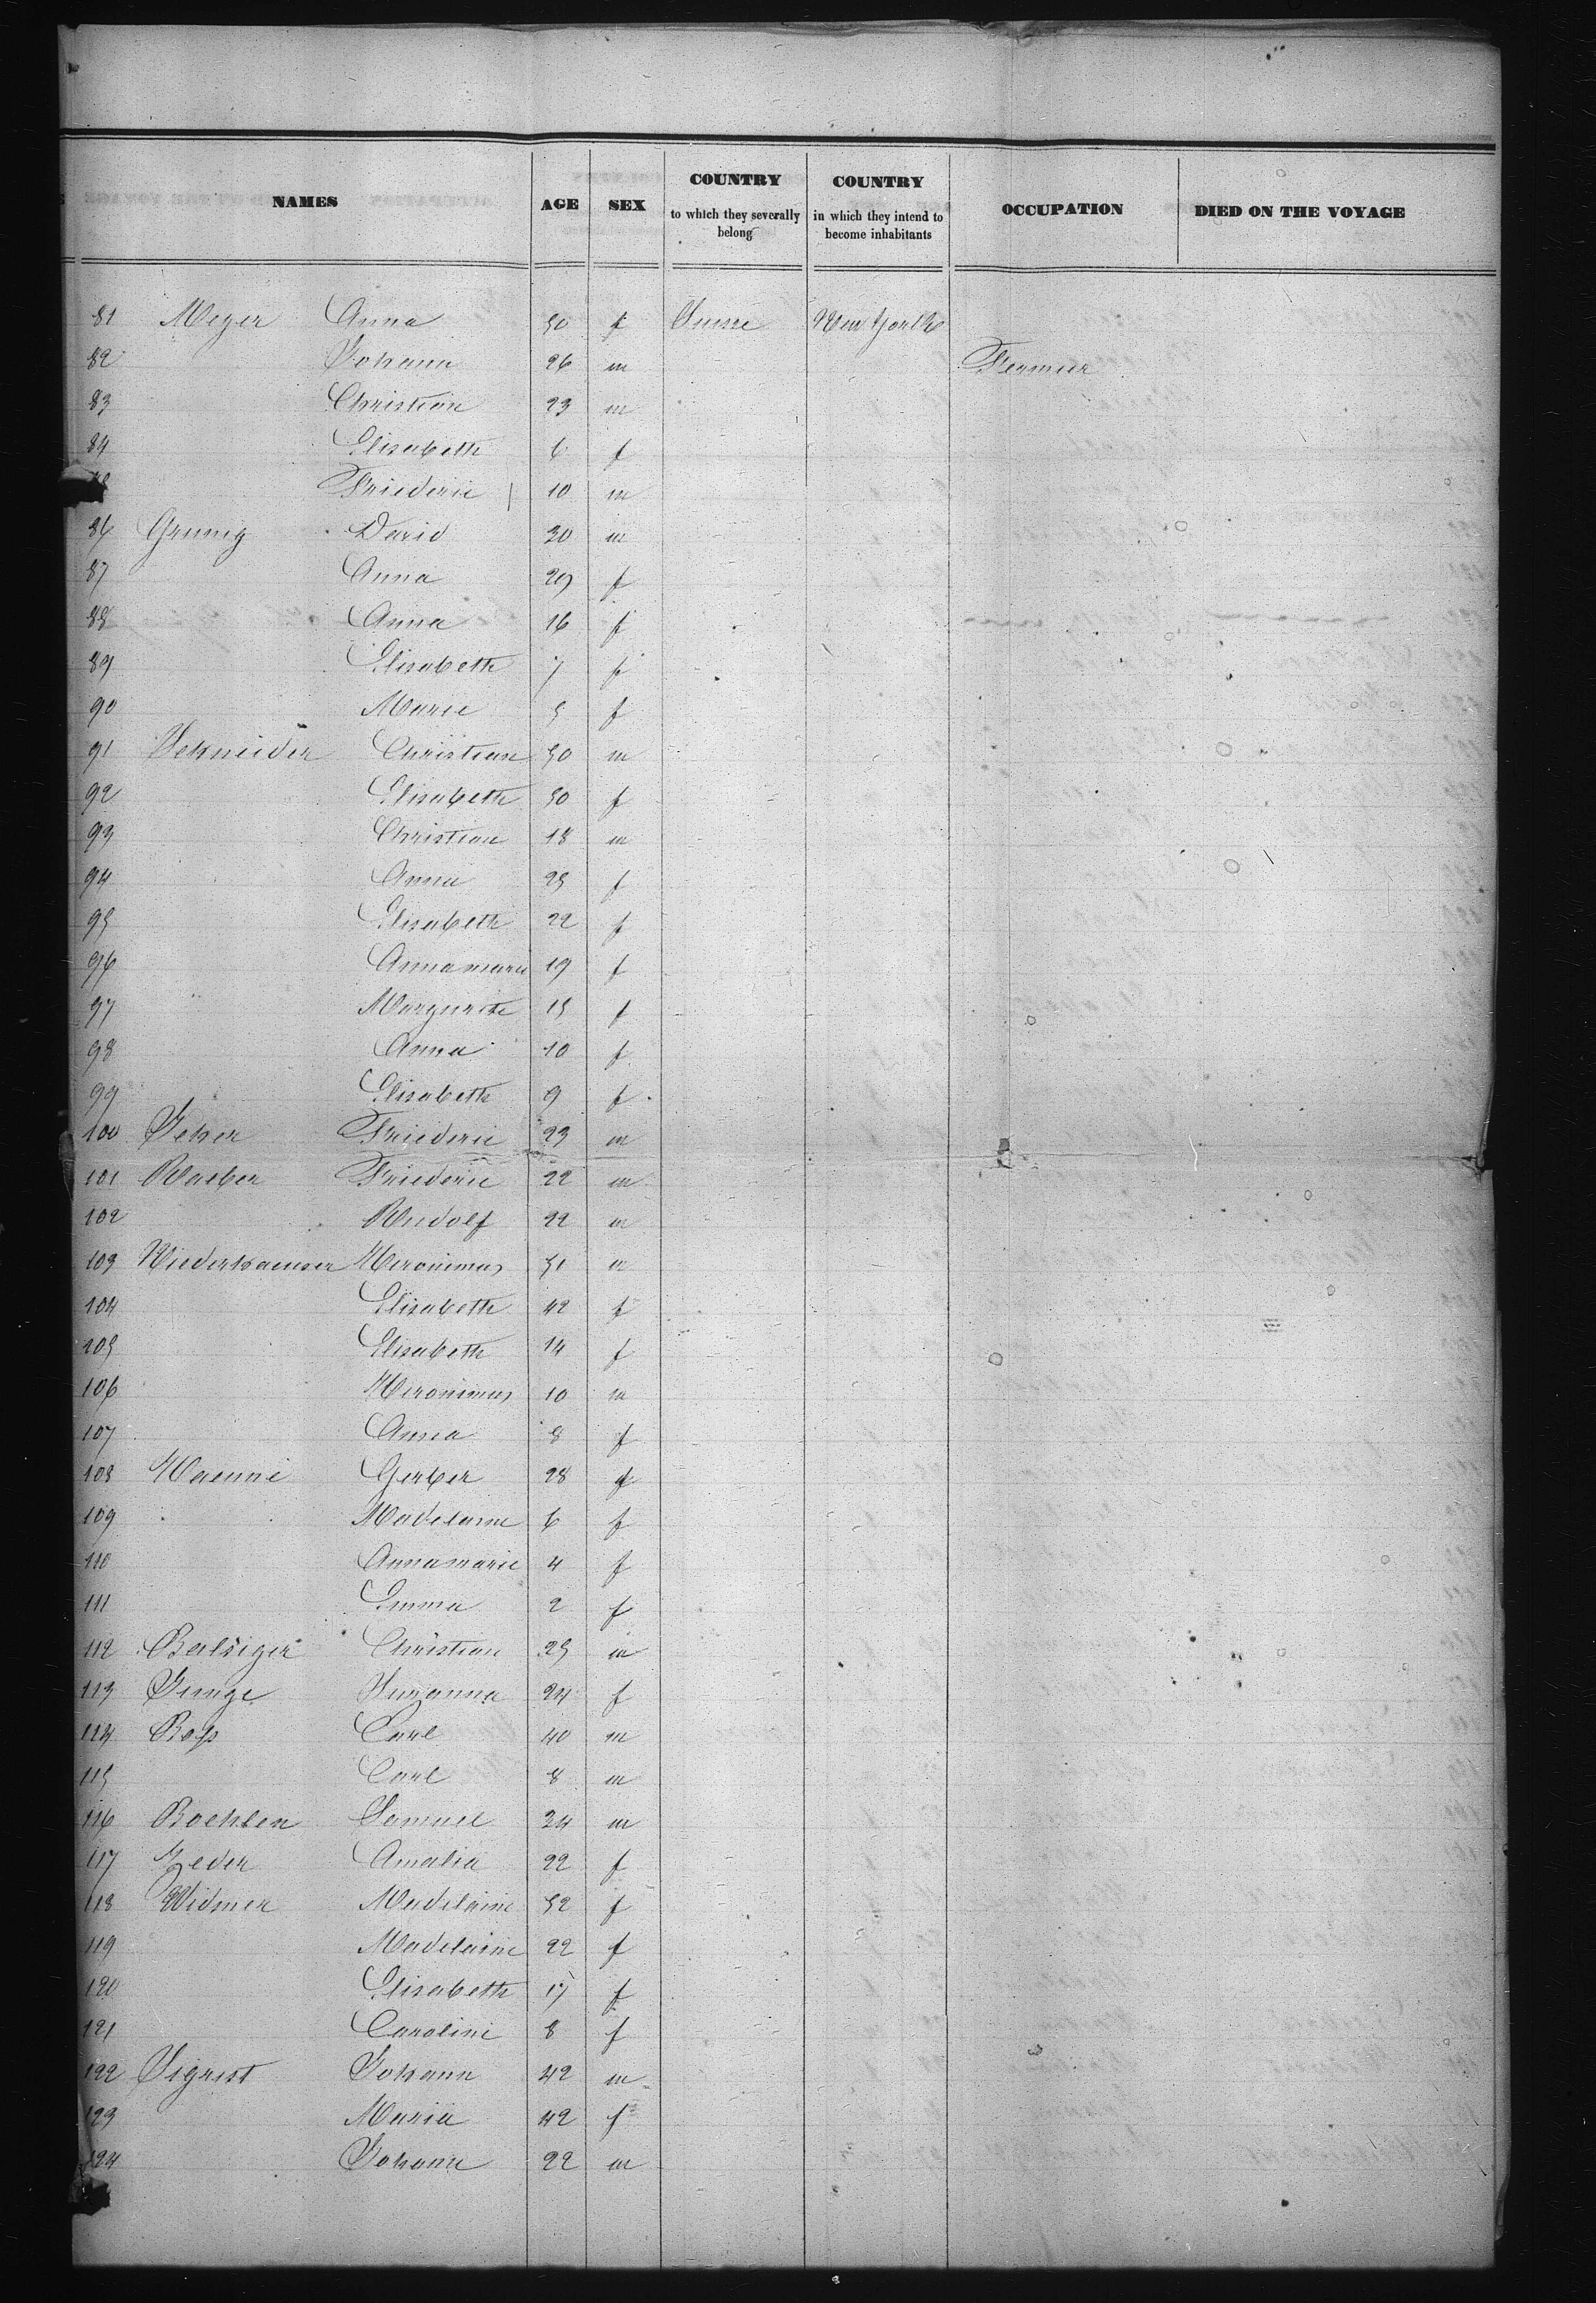 NAMES AGE SEX COUNTRY to which they severally belong COUNTRY in which they intend to become inhabitants OCCUPATION DIED ON THE VOYAGE
81 Meyer Anna 50 f Suisse New York
82 Johann 26 m Fermier
83 Christian 23 m
84 Elisabeth 6 f
Friederic 10 m
86 Grunig David 30 m
87 Anna 29 f
88 Anna 16 f
89 Elisabeth 7 f
90 Marie 5 f
91 Schneider Christian 50 m
92 Elisabeth 50 f
93 Christian 18 m
94 Anna 25 f
95 Elisabeth 22 f
96 Annamaria 19 f
97 Margurite 15 f
98 Anna 10 f
99 Elisabeth 9 f
100 Isker Friederic 23 m
101 Waeber Friederic 22 m
102 Rudolf 22 m
103 Niederhaeuser Hieronimus 51 m
104 Elisabeth 42 f
105 Elisabeth 14 f
106 Hieronimus 10 m
107 Anna 8 f
108 Waenni Gerber 28 f
109 Madelaine 6 f
110 Annamarie 4 f
111 Emma 2 f
112 Balsiger Christian 25 m
113 Susanna 24 f
114 Boss Carl 40 m
115 Carl 8 m
116 Boehlen Samuel 34 m
117 Zeder Amalia 22 f
118 Widmer Madelaine 52 f
119 Madelaine 22 f
120 Elisabeth 17 f
121 Caroline 8 f
122 Sigrist Johann 42 m
123 Maria 42 f
124 Johann 22 m